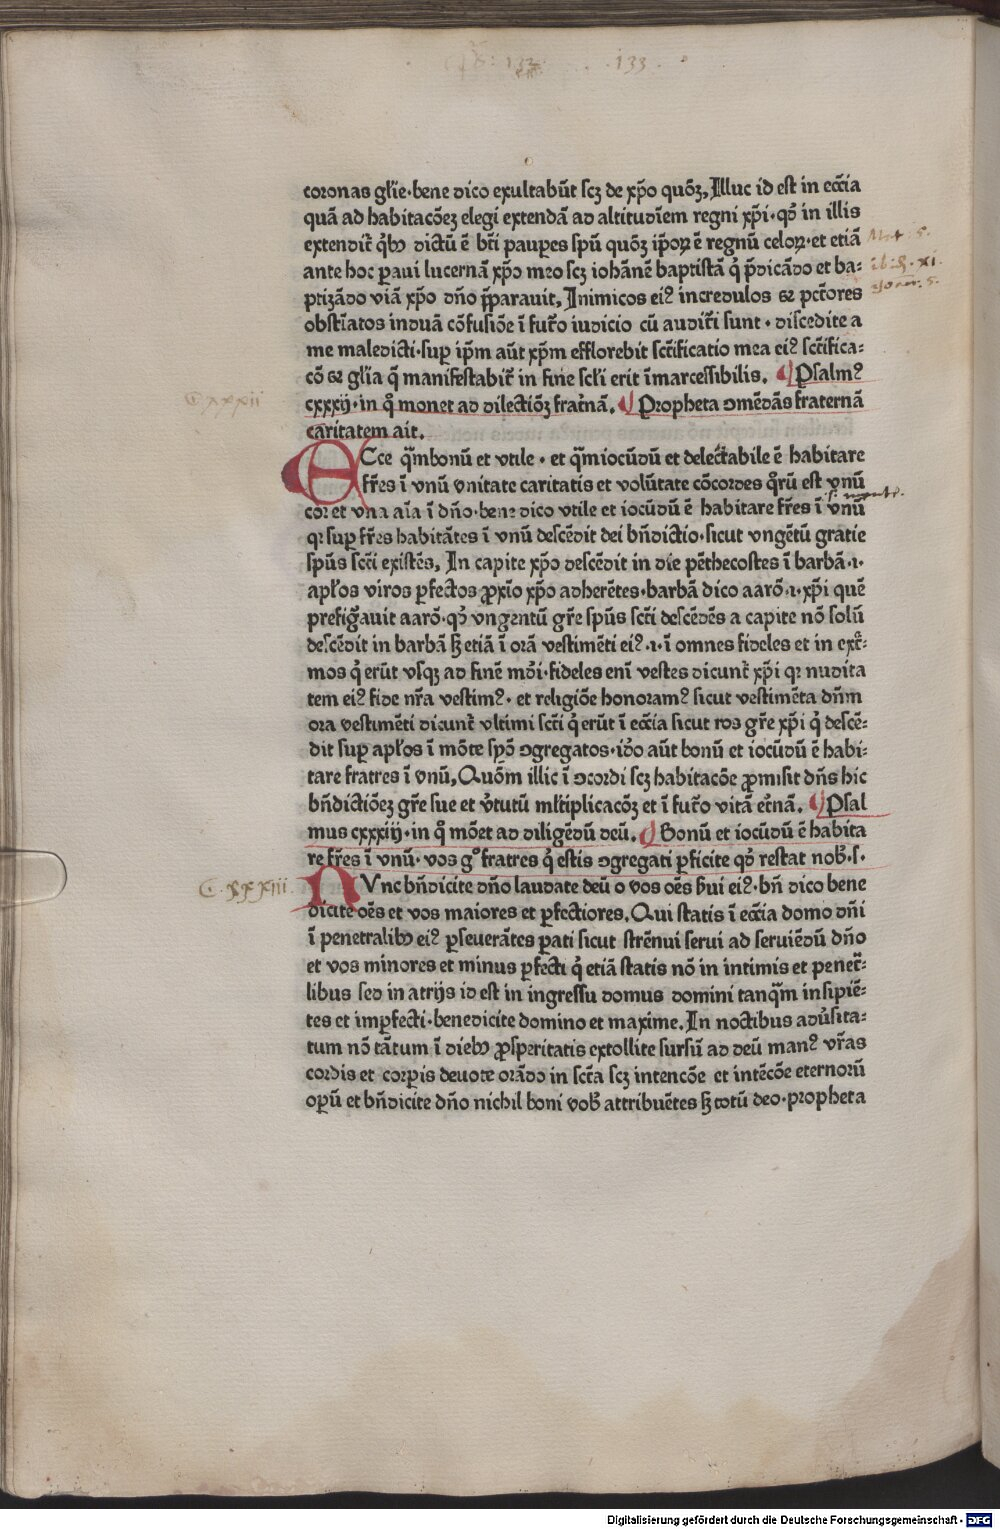 133
coronas gl̃ie·bene dico exultabũt scz de xp̃o quõz, Illuc id est in ecc̃ia
quã ad habitacõez elegi extendã ad altitudiẽm regni xp̃i·qd̾ in illis
extendit̃ q̃bꝰ dictũ ẽ bt̃i paupes spũ quõz ip̃oꝝ ẽ regnũ celoꝝ·et etiã
ante hoc ꝑaui lucernã xp̃o meo scz iohãnẽ baptistã q̾ p̃dicãdo et ba:
ptizãdo viã xp̃o dño p̃parauit, Inimicos eiꝰ incredulos ⁊ pctõres
obstĩatos induã cõfusiõe ĩ futo̾ iudicio cũ audit̾i sunt·discedite a
me maledicti·suꝑ ip̃m aũt xp̃m efflorebit sctificatio mea eiꝰ sctifica:
cõ ⁊ gl̃ia q̃ manifestabit̃ in fine scl̃i erit ĩmarcessibilis. ¶ Psalmꝰ
cxxxij·in q̊ monet ad dilectiõz frat̾nã. ¶ Propheta ꝯmẽdãs fraternã
caritatem ait.
ECce q̃mbonũ et vtile·et q̃miocũdũ et delectabile ẽ habitare
fr̃es ĩ vnũ vnitate caritatis et volũtate cõcordes q̃rũ est vnũ
cor et vna aĩa ĩ dño·bene dico vtile et iocũdũ ẽ habitare fr̃es ĩ vnũ
qꝛ suꝑ fr̃es habitãtes ĩ vnũ descẽdit dei bñdictio·sicut vngẽtũ gratie
spũs scti existẽs, In capite xp̃o descẽdit in die pẽthecostes ĩ barbã·ı·
apl̃os viros ꝑfectos ꝓxĩo xp̃o adherẽtes·barbã dico aarõ·ı·xp̃i quẽ
prefigũauit aarõ·qd̾ vngentũ gr̃e spũs scti descẽdẽs a capite nõ solũ
descẽdit in barbã sꝫ etiã ĩ orã vestimẽti eiꝰ·ı·ĩ omnes fideles et in ext̾:
mos q̾ erũt vsqꝫ ad finẽ mũdi·fideles enĩ vestes dicunt̃ xp̃i qꝛ nudita
tem eiꝰ fide nr̃a vestimꝰ·et religiõe honoramꝰ sicut vestimẽta dñm
ora vestimẽti dicunt̃ vltimi scti q̾ erũt ĩ ecc̃ia sicut ros gr̃e xp̃i q̾ descẽ:
dit suꝑ apl̃os ĩ mõte syõ ꝯgregatos·iõo aũt bonũ et iocũdũ ẽ habi:
tare fratres ĩ vnũ, Quõm illic ĩ ꝯcordi scz habitacõe ꝓmisit dñs hic
bñdictiõez gr̃e sue et v̾tutũ ml̃tiplicacõz et ĩ futo̾ vitã et̾nã. ¶ Psal
mus cxxxiij·in q̊ mõet ad diligẽdũ deũ. ¶ Bonũ et iocũdũ ẽ habita
re fr̃es ĩ vnũ·vos gº fratres q̾ estis ꝯgregati ꝑficite qd̾ restat nob̾·s·
NVnc bñdicite dño laudate deũ o vos oẽs s̾ui eiꝰ·bñ dico bene
dicite oẽs et vos maiores et ꝑfectiores, Qui statis ĩ ecc̃ia domo dñi
ĩ penetralibꝰ eiꝰ ꝑseuerãtes ꝑati sicut strẽnui serui ad seruiẽdũ dño
et vos minores et minus ꝑfecti q̾ etiã statis nõ in intimis et penet̃:
libus sed in atrijs id est in ingressu domus domini tanq̃m insipiẽ:
tes et imꝑfecti·benedicite domino et maxime, In noctibus adũsita:
tum nõ tãtum ĩ diebꝰ ꝓsperitatis extollite sursũ ad deũ manꝰ vr̃as
cordis et corꝑis deuote orãdo in scta scz intencõe et intẽcõe eternorũ
oꝑũ et bñdicite dño nichil boni vob̾ attribuẽtes sꝫ totũ deo·propheta
Mat. 5.
Cxxxii
C. xxxiii
Digitalisierung gefördert durch die Deutsche Forschungsgemeinschaft - DFG